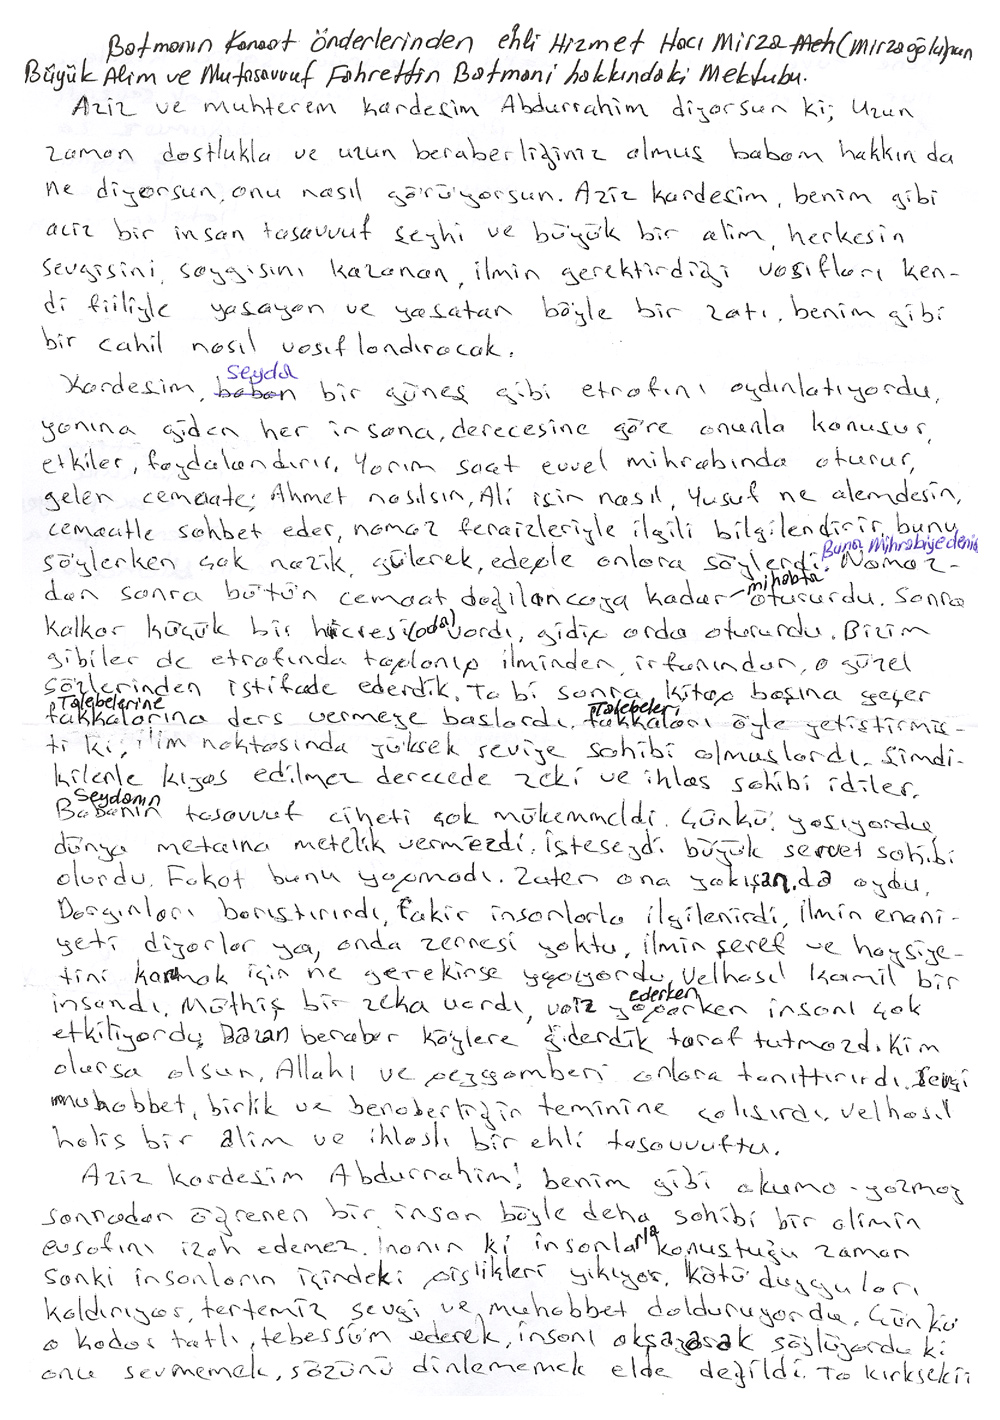 Batmanın Kanaat Önderlerinden ehli Hizmet Hacı Mirza Meh (Mirzaoğlu)nun
Büyük Alim ve Mutasavvuf Fahrettin Batmani hakkındaki Mektubu.
Aziz ve muhterem kardeşim Abdurrahim diyorsun ki; Uzun
zaman dostlukla ve uzun beraberliğiniz olmuş babam hakkında
ne diyorsun, onu nasıl görüyorsun. Aziz kardeşim, benim gibi
aciz bir insan tasavvuf şeyhi ve büyük bir alim, herkesin
sevgisini, saygısını kazanan, ilmin gerektirdiği vasıfları ken-
di fiiliyle yaşayan ve yaşatan böyle bir zatı, benim gibi
bir cahil nasıl vasıflandıracak.
seyda
Kardeşim, baban bir güneş gibi etrafını aydınlatıyordu,
yanına giden her insana, derecesine göre onunla konuşur,
etkiler, faydalandırır. Yarım saat evvel mihrabında oturur,
gelen cemaate; Ahmet nasılsın, Ali işin nasıl, Yusuf ne alemdesin,
cemaatle sohbet eder, namaz feraizleriyle ilgili bilgilendirir, bunu
Buna Mihrabiye denir
söylerken çok nazik, gülerek, edeple onlara söylerdi. Namaz-
mihabta
dan sonra bütün cemaat dağılancaya kadar otururdu. Sonra
kalkar küçük bir hücresi (oda) vardı, gidip orda otururdu. Bizim
gibiler de etrafında toplanıp ilminden, irfanından, o güzel
sözlerinden istifade ederdik. Tabi sonra, kitap başına geçer
Talebelerine Talebeleri
fakkalarına ders vermeye başlardı. fakkaları öyle yetiştirmiş-
ti ki; ilim noktasında yüksek seviye sahibi olmuşlardı. Şimdi-
kilerle kıyas edilmez derecede zeki ve ihlas sahibi idiler.
Seydanın
Babanın tasavvuf ciheti çok mükemmeldi. Çünkü, yaşıyordu,
dünya metaına metelik vermezdi. İsteseydi büyük servet sahibi
olurdu. Fakat bunu yapmadı. Zaten ona yakışan da oydu.
Dargınları barıştırırdı, fakir insanlarla ilgilenirdi, ilmin enani-
yeti diyorlar ya, onda zerresi yoktu, ilmin şeref ve haysiye-
tini korumak için ne gerekirse yapıyordu. Velhasıl kamil bir
ederken
insandı. Müthiş bir zeka vardı, vaiz yaparken insanı çok
etkiliyordu. Bazan beraber köylere giderdik taraf tutmazdı. Kim
olursa olsun, Allahı ve peygamberi onlara tanıttırırdı. Sevgi
muhabbet, birlik ve beraberliğin teminine çalışırdı. Velhasıl
halis bir alim ve ihlaslı bir ehli tasavvuftu.
Aziz kardeşim Abdurrahim! benim gibi okuma-yazmay
sonradan öğrenen bir insan böyle deha sahibi bir alimin
evsafını izah edemez. İnanın ki insanlarla konuştuğu zaman
sanki insanların içindeki pislikleri yıkıyor, kötü duyguları
kaldırıyor, tertemiz sevgi ve muhabbet dolduruyordu. Çünkü
o kadar tatlı, tebessüm ederek, insanı okşayarak söylüyordu ki
onu sevmemek, sözünü dinlememek elde değildi. Ta kırksekiz